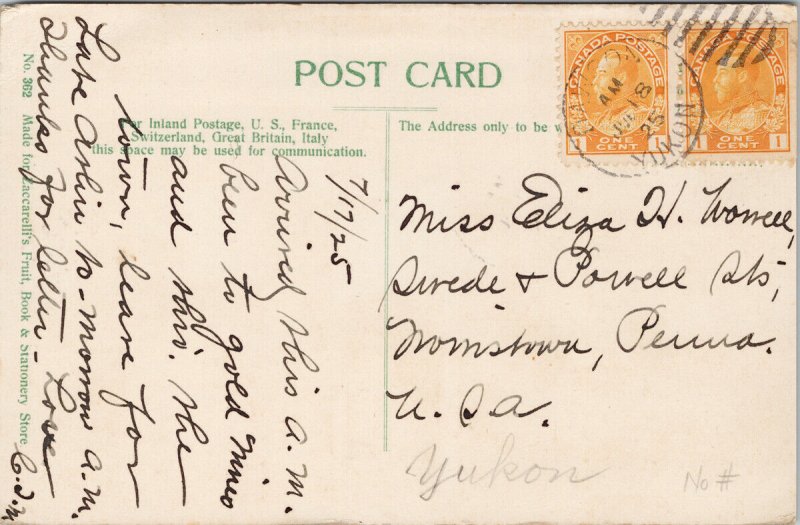 POST CARD
For Inland Postage, U. S., France,
Switzerland, Great Britain, Italy
this space may be used for communication.
The Address only to be w
CANADA POSTAGE
ONE CENT
1 1
CANADA POSTAGE
ONE CENT
1 1
AM
18
25
YUKON
7/17/25
Arrived this a.m.
been to gold mines
and thro. the
town, leave for
Lake Atlin to-morrow a.m.
Thanks for letter - Love
No. 362 Made for Zaccarelli's Fruit, Book & Stationery Store
Miss Eliza H. Worrell,
Swede & Powell Sts,
Norristown, Penna.
U. S. A.
Yukon
No #